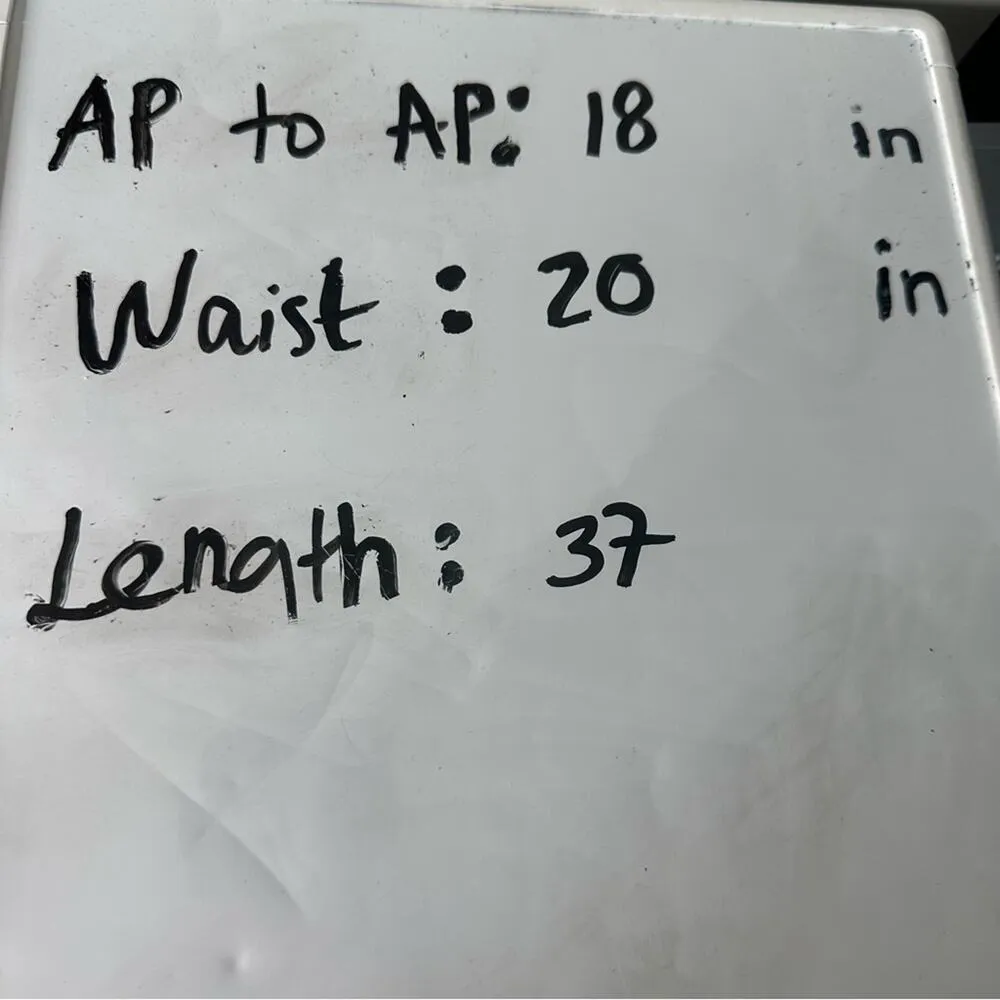 AP to AP: 18 in
Waist : 20 in
Length : 37